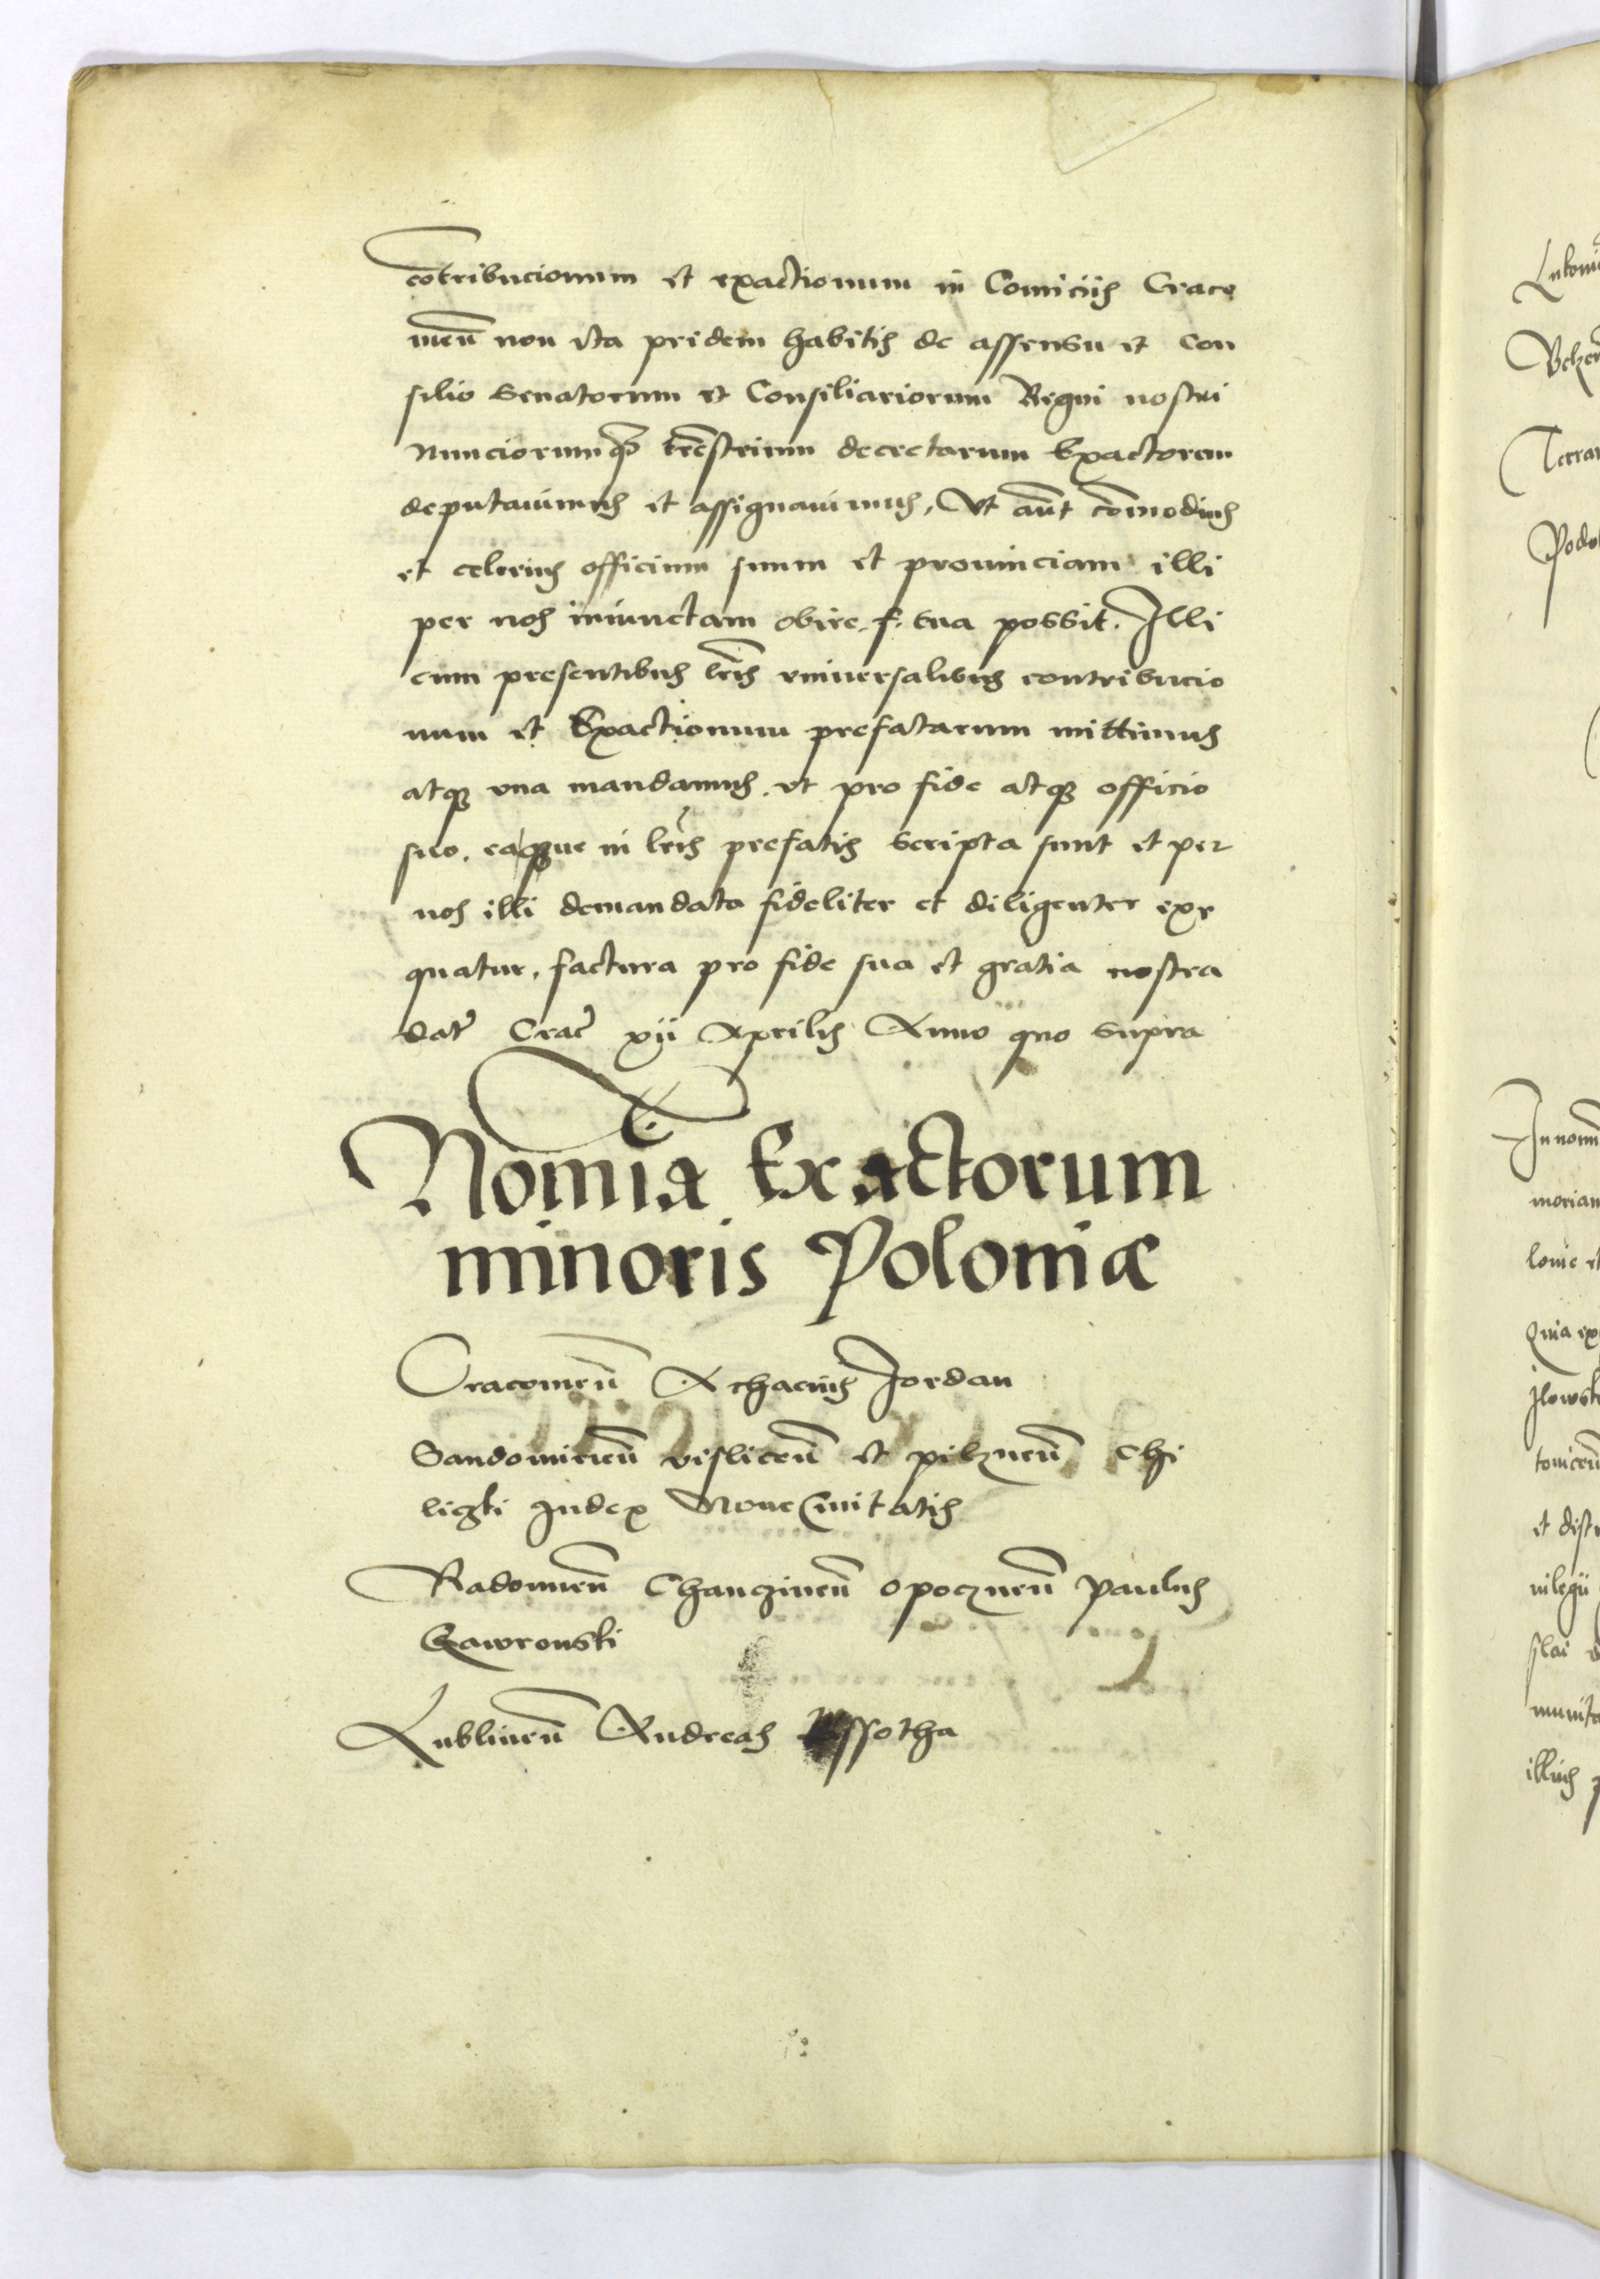 cōtribucionum et exactionum in Comiciis Craco
uień non ita pridem habitis de assensu et con
silio Senatorum et Consiliariorum Regni nostri
Nunciorumq̃ trēstrium decretarum Exactorem
deputauimus et assignauimus, Ut aūt cōmodius
et celerius officium suum et prouinciam illi
per nos iniunctam obire f. sua possit. Illi
cum presentibus lrīs vniuersalibus contribucio
num et Exactionum prefatarum mittimus
atq̃ vna mandamus, vt pro fide atq̃ officio
suo, eaque in lrīs prefatis scripta sunt et per
nos illi demandata fideliter et diligenter exe
quatur, factura pro fide sua et gratia nostra
dat̃ Crac̃ xii Aprilis Anno quo supra
Nomīa Exactorum
minoris Poloniæ
Cracouień Achacius Jordan
Sandomirień visliceń et pilzneń Chi
liczki Judex Noue Ciuitatis
Radomień Chanczineń opoczneń Paulus
Gawronski
Lublineń Andreas ssotha
Innomī
morian
louie et
Quia ex
toniceń
et distr
uilegii
slai
munita
illius
Terrar
Podol